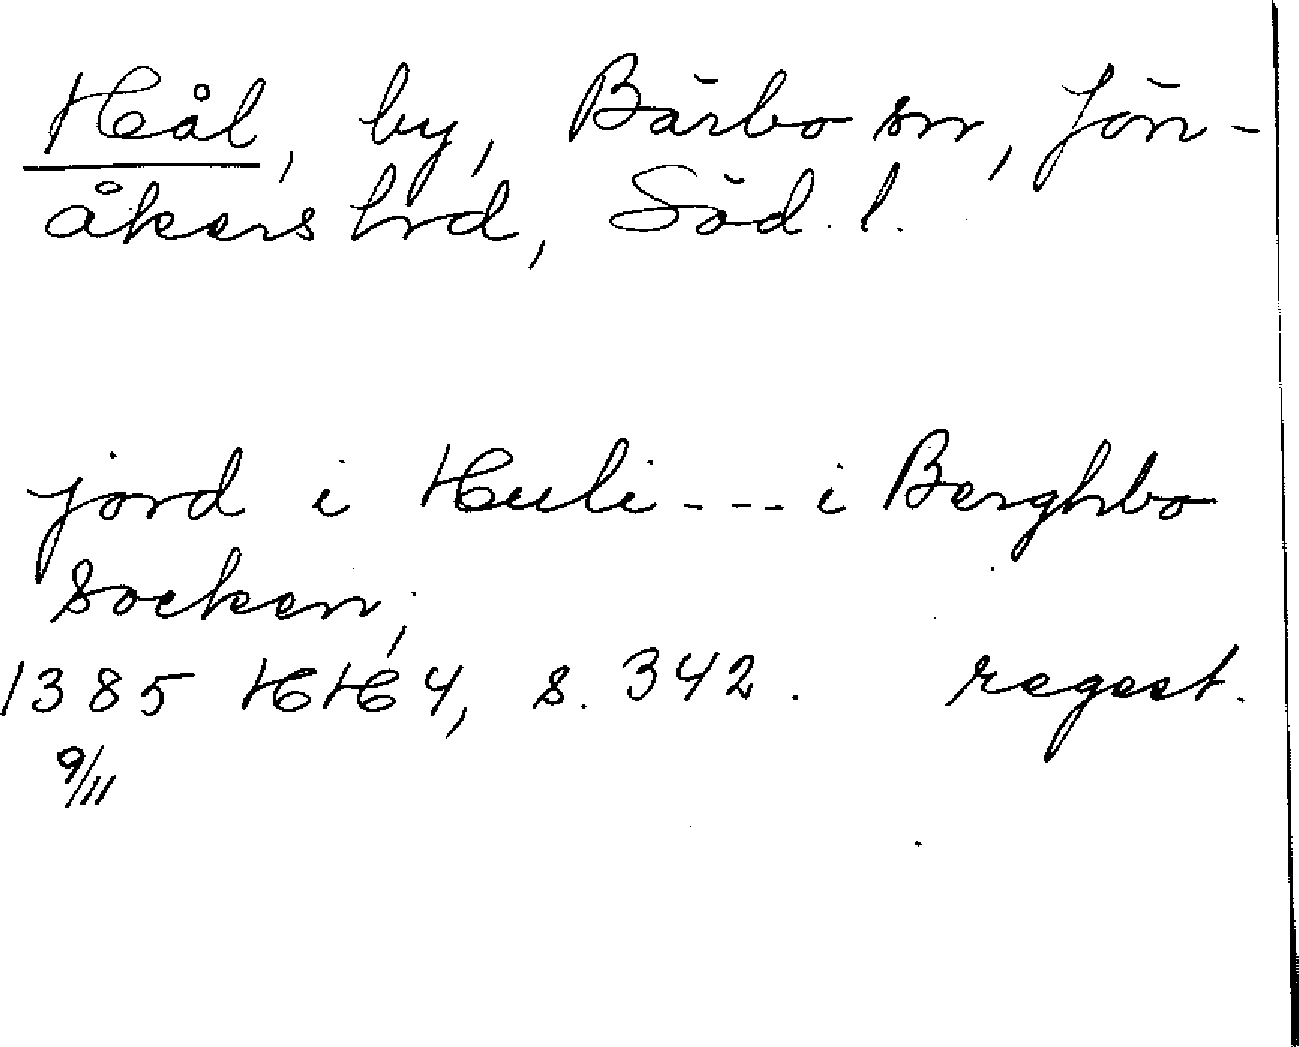 Hål, by, Bärbo sn, Jön-
åkers hrd, Söd. l.
jord i Huli --- i Berghbo
socken,
1385 HH 4, s. 342. regest.
9/11